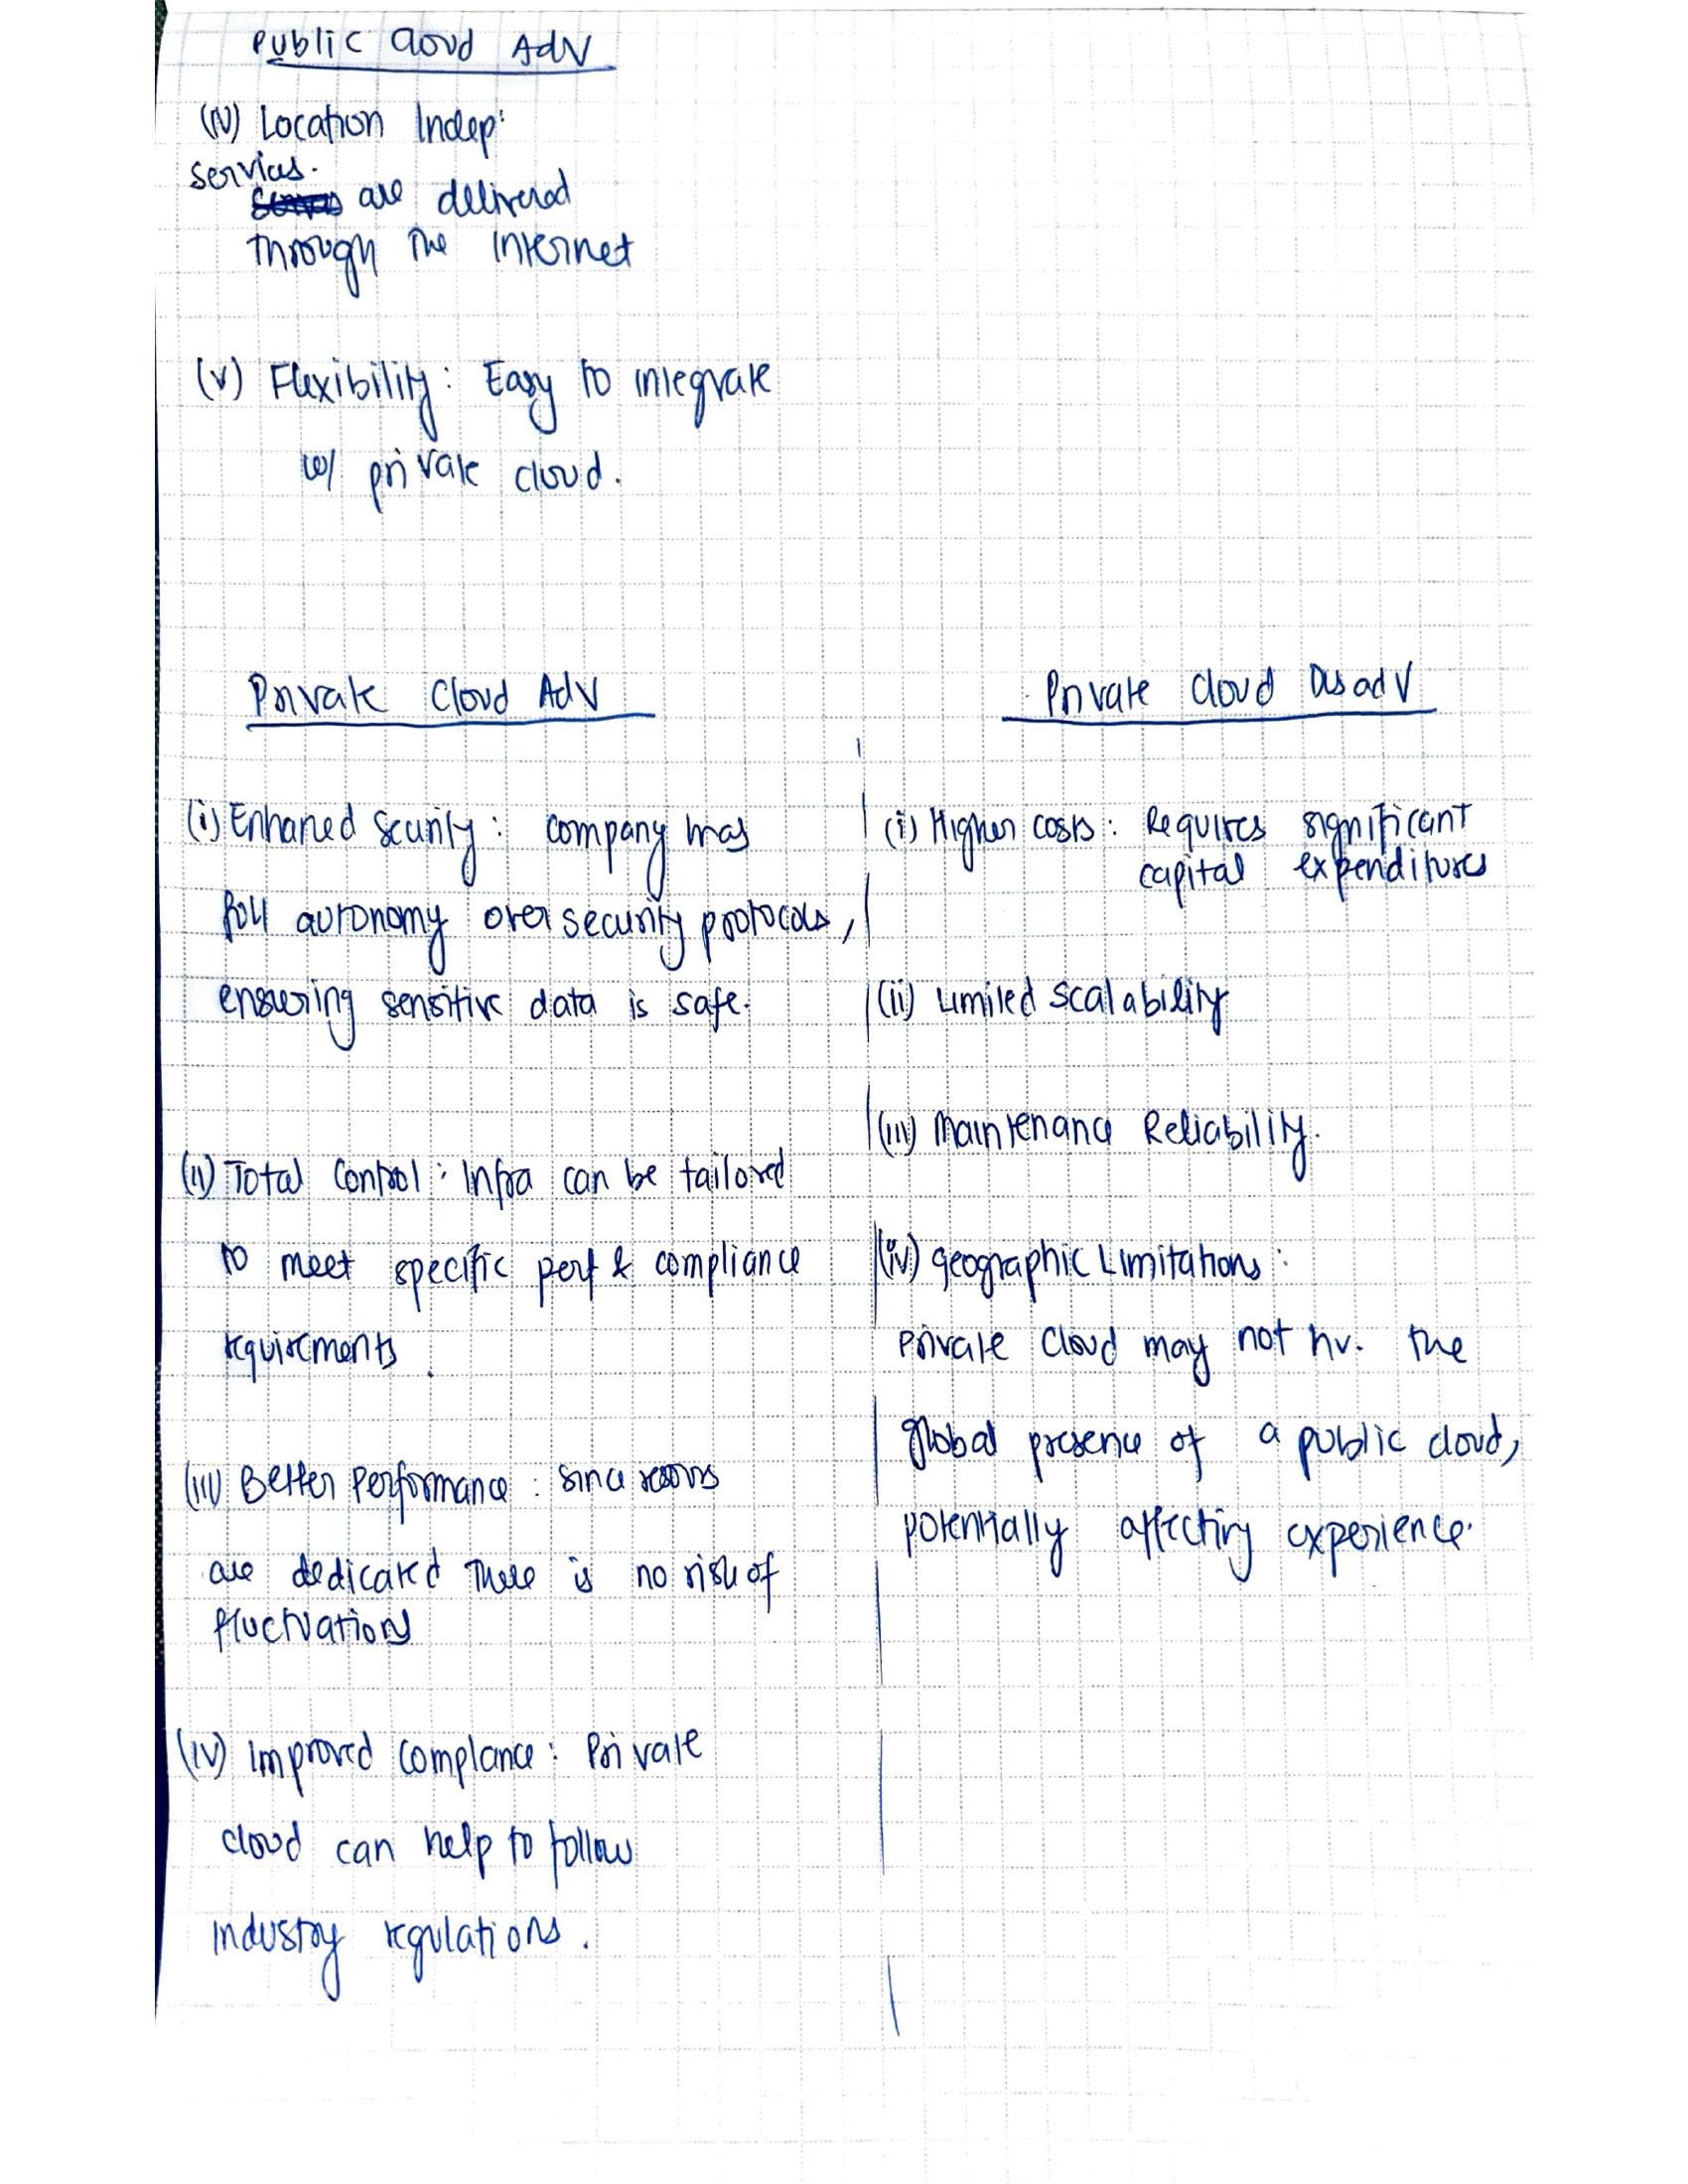 Public Cloud Adv
(IV) Location Indep:
services.
are delivered
through the Internet
(V) Flexibility: Easy to integrate
w/ private cloud.
Private Cloud Adv
(i) Enhanced Security: company has
full autonomy over security protocols,
ensuring sensitive data is safe.
(ii) Total Control: Infra can be tailored
to meet specific perf & compliance
requirements.
(iii) Better Performance: since
are dedicated there is no risk of
fluctuations
(iv) Improved complance: Private
cloud can help to follow
industry regulations.
Private Cloud Disadv
(i) Higher costs: Requires significant
capital expenditures
(ii) Limited Scalability
(iii) Maintenance Reliability.
(iv) Geographic Limitations:
Private Cloud may not hv. the
global presence of a public cloud,
potentially affecting experience.